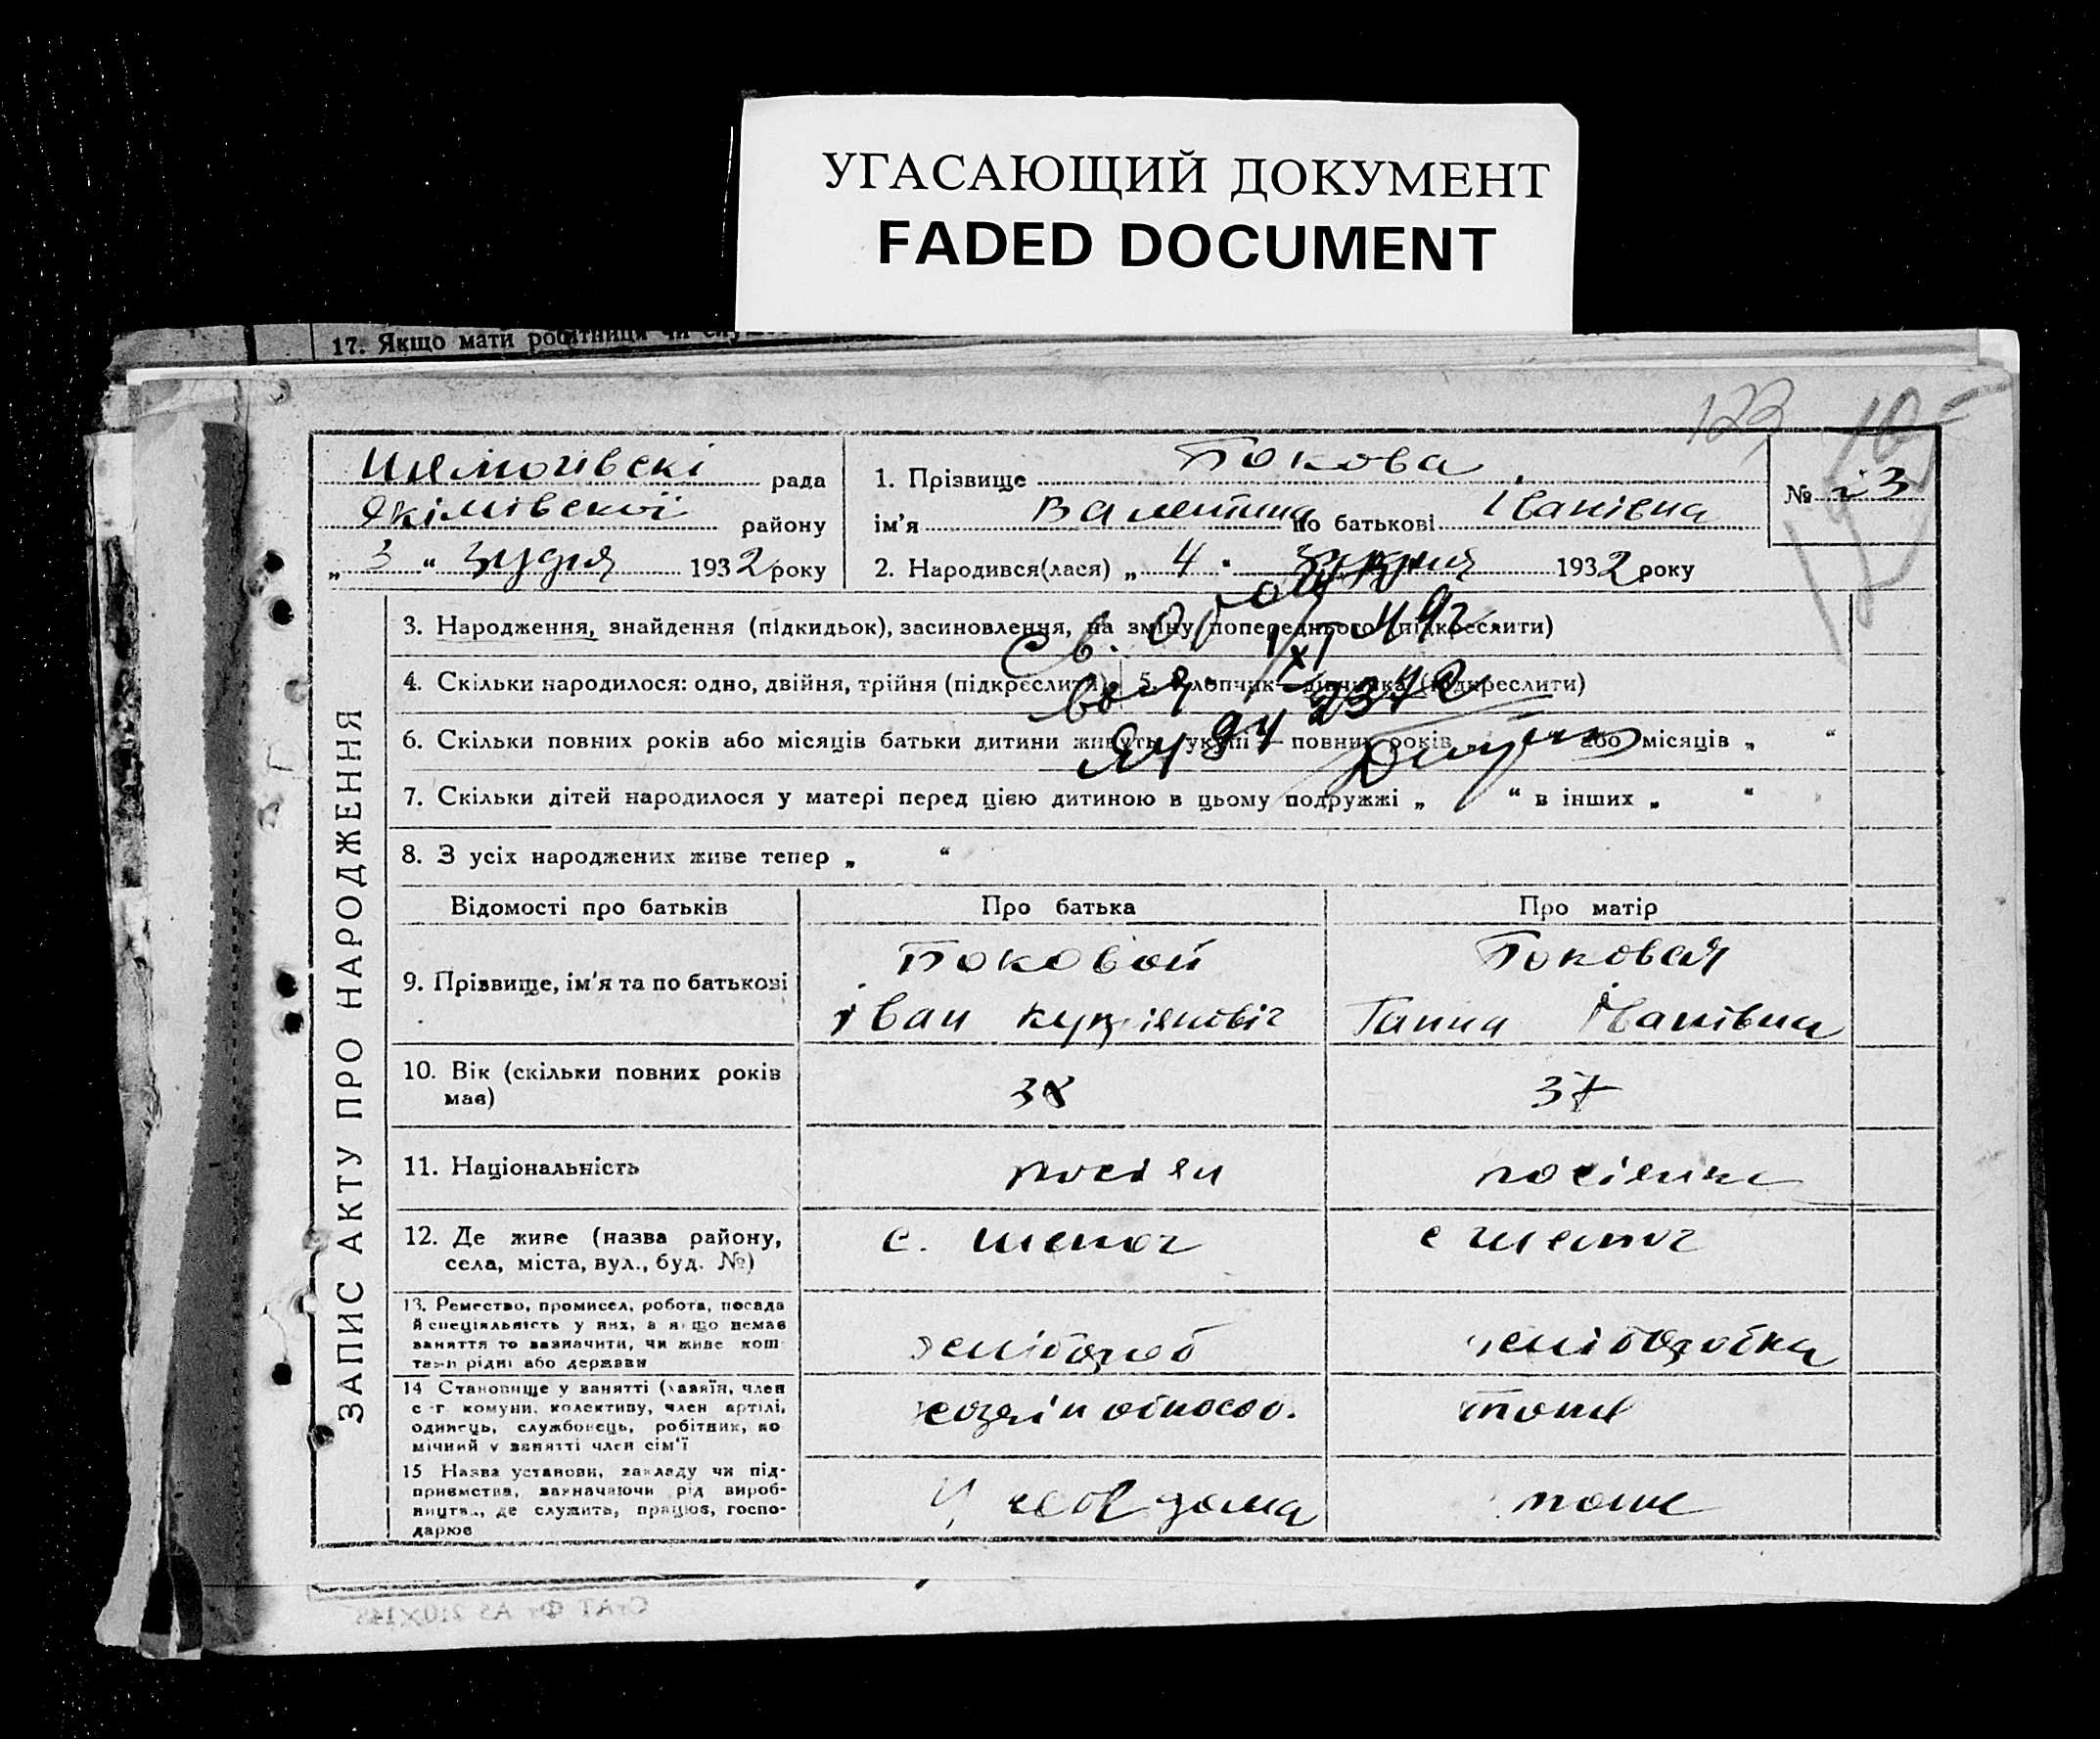 УГАСАЮЩИЙ ДОКУМЕНТ
FADED DOCUMENT
17. Якщо мати робітниця чи
123
рада
Якімівської району
„ 3 “ 1932 року
1. Прізвище Бокова
ім'я Валентина по батькові Іванівна
2. Народився(лася) „ 4 “ 1932 року
№ 23
ЗАПИС АКТУ ПРО НАРОДЖЕННЯ
3. Народження, знайдення (підкидьок), засиновлення, на зміну попереднього (підкреслити)
4. Скільки народилося: одно, двійня, трійня (підкреслити) 5. Хлопчик—дівчинка (підкреслити)
6. Скільки повних років або місяців батьки дитини живуть укупі — повних років „ або місяців „ “
7. Скільки дітей народилося у матері перед цією дитиною в цьому подружжі „ “ в інших „ “
8. З усіх народжених живе тепер „ “
Відомості про батьків
Про батька
Про матір
9. Прізвище, ім'я та по батькові
Боковой
Іван
Боковая
Ганна Іванівна
10. Вік (скільки повних років
має)
38
37
11. Національність
росіян
росіянка
12. Де живе (назва району,
села, міста, вул., буд. №)
с. Шемог
с Шемог
13. Ремество, промисел, робота, посада
й спеціяльність у них, а якщо немає
заняття то зазначити, чи живе кош-
тами рідні або держави
хлібороб
хліборобка
14 Становище у занятті (хазяїн, член
с-г. комуни, колективу, член артілі,
одинець, службовець, робітник, по-
мічний у занятті член сім'ї
хозяін
тоже
15 Назва установи, закладу чи під-
приємства, зазначаючи рід вироб-
ництва, де служить, працює, госпо-
дарює
У себе дома
тоже
СтАТ Фт А5 210×148